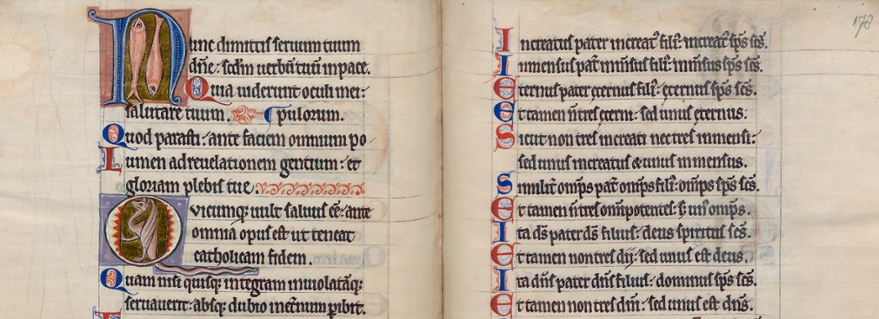 Nunc dimittis seruum tuum
dñe: scdm uerbũ tuũ in pace.
Quia uiderunt oculi mei:
salutare tuum. pulorum.
Quod parasti: ante faciem omnium po
Lumen ad reuelationem gentium: et
gloriam plebis tue
Quicumque uult saluus eē: ante
omnia opus est ut teneat
catholicam fidem.
Quam nisi quisq; integram inuiolatāq;
seruauerit: absq; dubio inet̃num p̱ibit.
178
Increatus pater increatꝰ filiꝰ: increatꝰ sp̃s sc̃s.
Inmensus pat̃ inm̃sus filiꝰ: inm̃sus sp̃s sc̃s.
Eternus pater ęternus filiꝰ: ęternus sp̃s sc̃s.
Et tamen ñ tres ęterni: sed unus ęternus:
Sicut non tres increati nec tres inmensi:
sed unus increatus & unus inmensus.
Similit̃ omp̃s pat̃ omp̃s filiꝰ: omp̃s sp̃s sc̃s.
Et tamen ñ tres om̃potentes: s; unꝰ omp̃s.
Ita dš pater dš filius: deus spiritus sc̃s.
Et tamen non tres dij: sed unus est deus.
Ita dñs pater dñs filius: dominus sp̃s sc̃s.
Et tamen non tres dñi: sed unus est dñs.